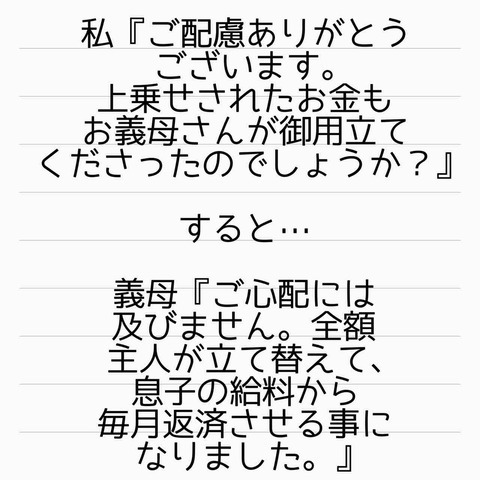 私『ご配慮ありがとう
ございます。
上乗せされたお金も
お義母さんが御用立て
くださったのでしょうか？』
すると…
義母『ご心配には
及びません。全額
主人が立て替えて、
息子の給料から
毎月返済させる事に
なりました。』